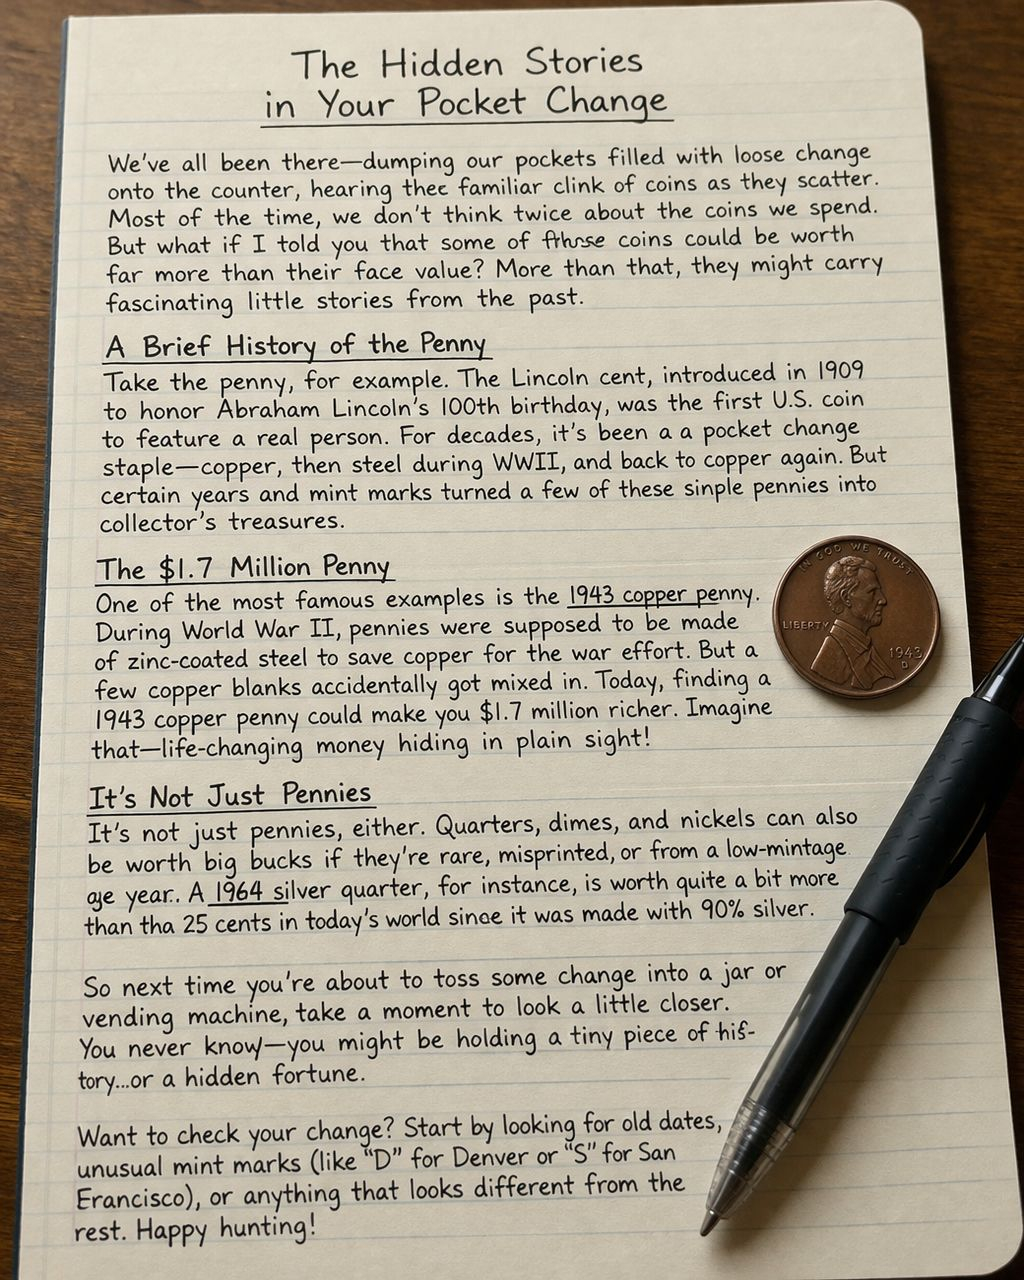 The Hidden Stories
in Your Pocket Change
We've all been there—dumping our pockets filled with loose change
onto the counter, hearing thee familiar clink of coins as they scatter.
Most of the time, we don't think twice about the coins we spend.
But what if I told you that some of coins could be worth
far more than their face value? More than that, they might carry
fascinating little stories from the past.
A Brief History of the Penny
Take the penny, for example. The Lincoln cent, introduced in 1909
to honor Abraham Lincoln's 100th birthday, was the first U.S. coin
to feature a real person. For decades, it's been a a pocket change
staple—copper, then steel during WWII, and back to copper again. But
certain years and mint marks turned a few of these sinple pennies into
collector's treasures.
The $1.7 Million Penny
One of the most famous examples is the 1943 copper penny.
During World War II, pennies were supposed to be made
of zinc-coated steel to save copper for the war effort. But a
few copper blanks accidentally got mixed in. Today, finding a
1943 copper penny could make you $1.7 million richer. Imagine
that—life-changing money hiding in plain sight!
IN GOD WE TRUST
LIBERTY
1943
D
It's Not Just Pennies
It's not just pennies, either. Quarters, dimes, and nickels can also
be worth big bucks if they're rare, misprinted, or from a low-mintage
age year.. A 1964 silver quarter, for instance, is worth quite a bit more
than tha 25 cents in today's world since it was made with 90% silver.
So next time you're about to toss some change into a jar or
vending machine, take a moment to look a little closer.
You never know—you might be holding a tiny piece of his-
tory...or a hidden fortune.
Want to check your change? Start by looking for old dates,
unusual mint marks (like "D" for Denver or "S" for San
Francisco), or anything that looks different from the
rest. Happy hunting!